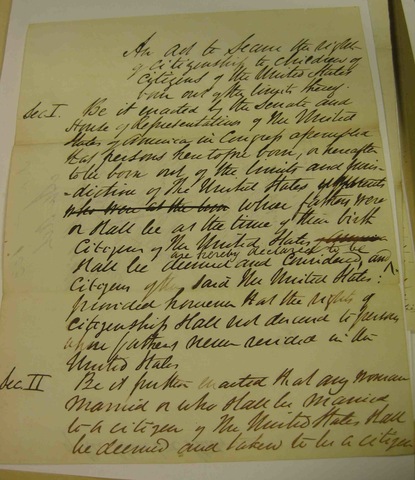 An act to Secure the right
of Citizenship to children of
Citizens of the United States
born out of the limits thereof.
Sec I. Be it enacted by the Senate and
House of Representatives of the United
States of America in Congress assembled
that persons heretofore born, or hereafter
to be born out of the limits and juris-
-diction of the United States of parents
who were at the born whose fathers were
or shall be at the time of their birth
Citizens of the United States
are hereby declared to be
shall be deemed and Considered and
Citizens of the said The United States:
provided however that the rights of
Citizenship shall not descend to persons
whose fathers never resided in the
United States
Sec II Be it further enacted that any woman
married or who shall be married
to a citizen of the United States shall
be deemed and taken to be a citizen